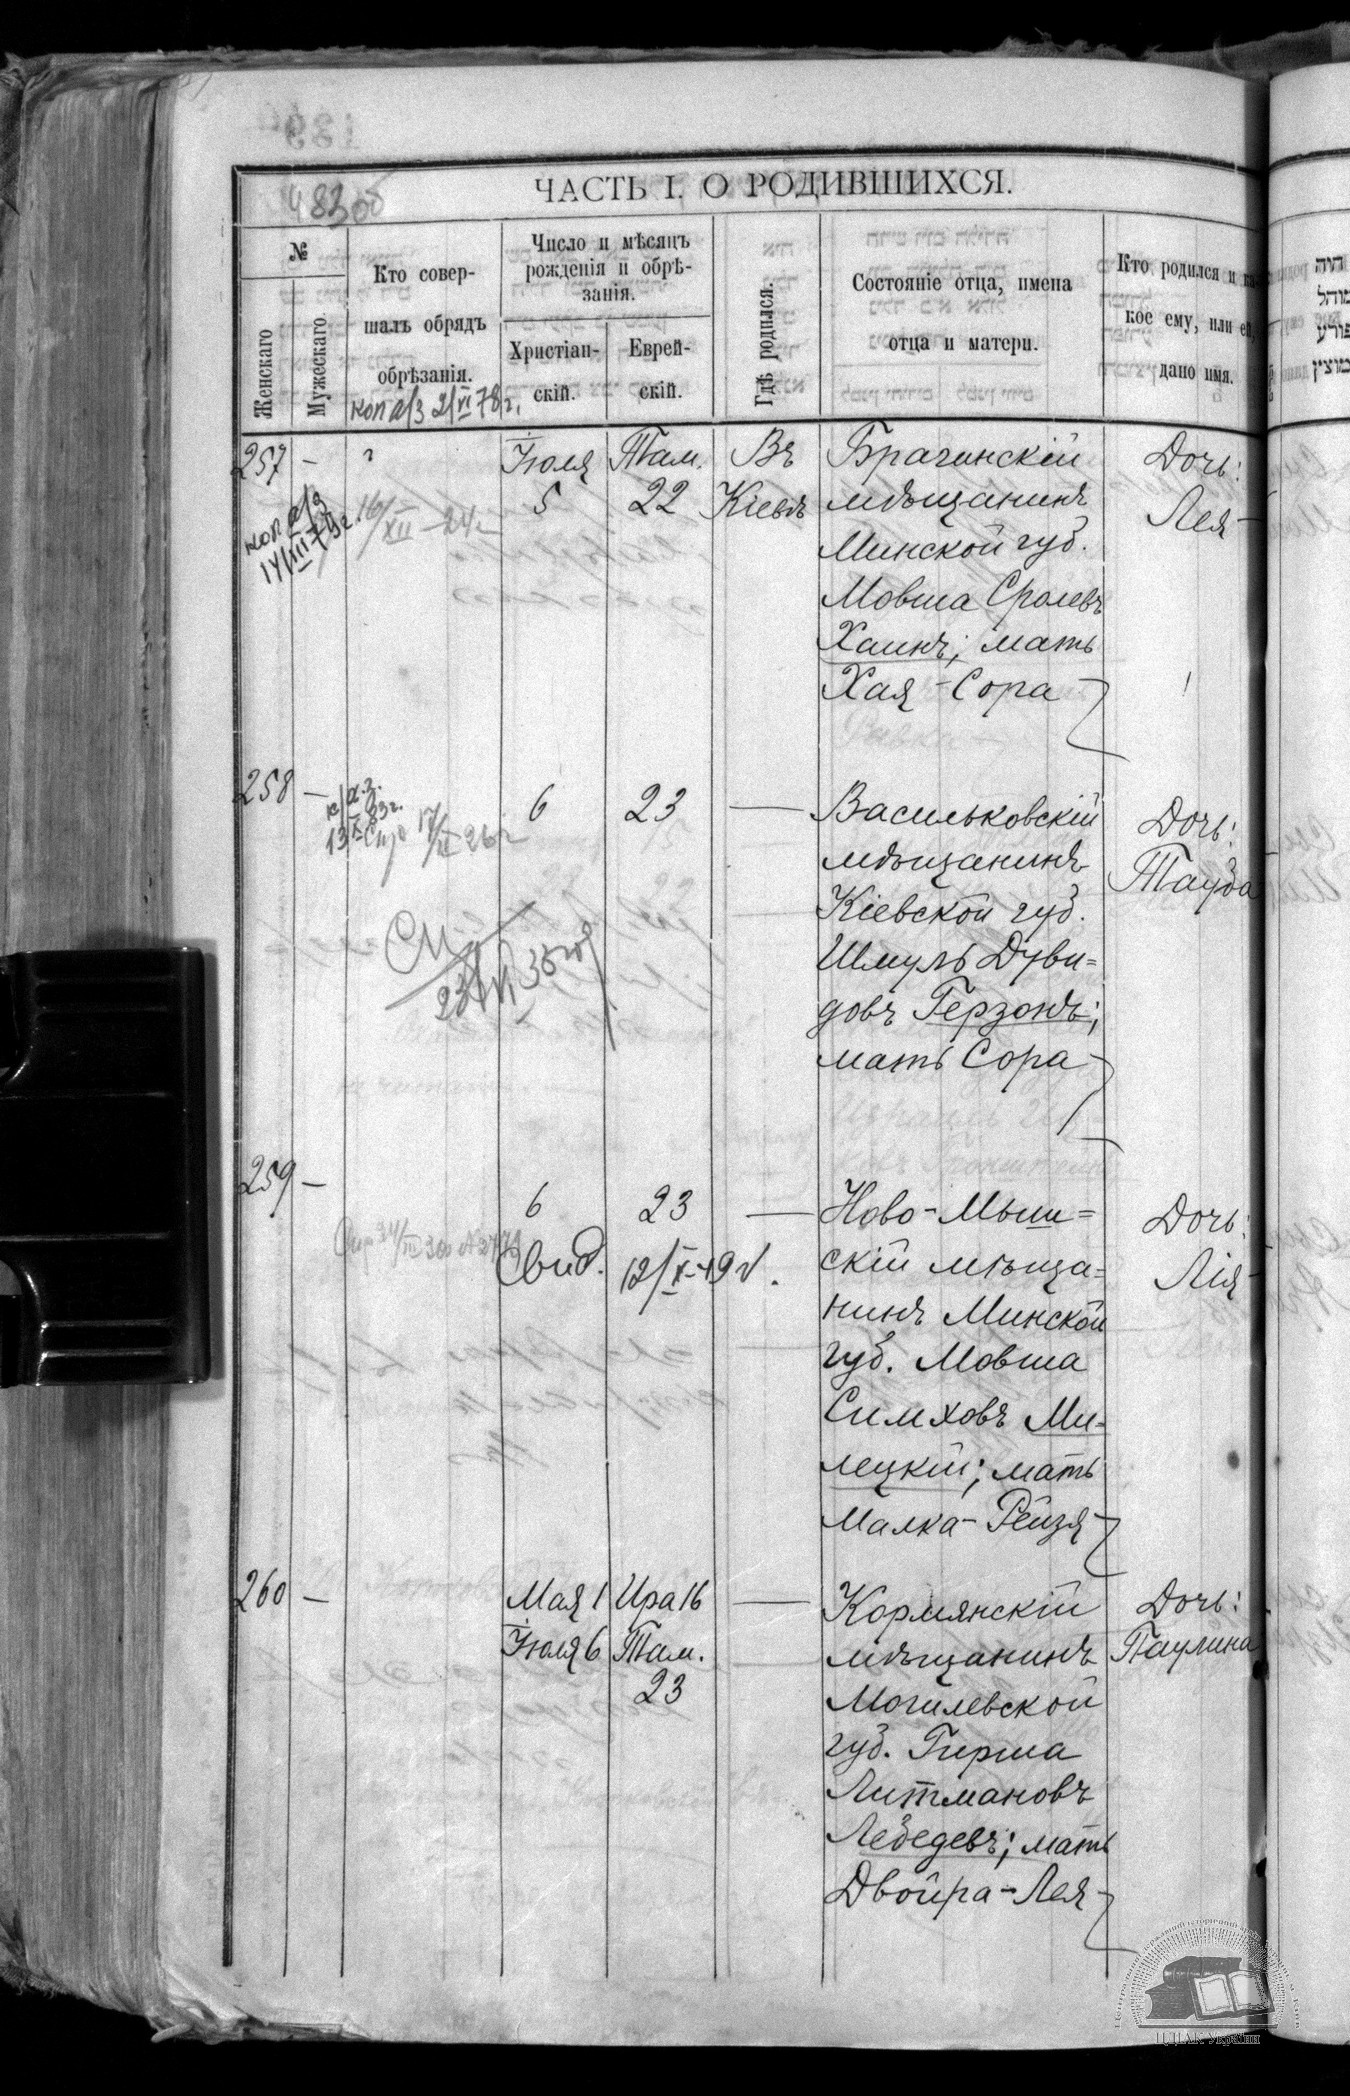 483 об
ЧАСТЬ I. О РОДИВШИХСЯ.
№
Женскаго
Мужескаго
Кто совер-
шалъ обрядъ
обрѣзанія.
коп а/з 2/VI 78 г.
Число и мѣсяцъ
рожденія и обрѣ-
занія.
Христіан-
скій.
Еврей-
скій.
Гдѣ родился.
Состояніе отца, имена
отца и матери.
Кто родился и ка-
кое ему, или ей,
дано имя.
257 –
коп а/з
14/III 79 г.
16/XII – 24 г.
Іюля
5
Там.
22
Въ
Кіевѣ
Брагинскій
мѣщанинъ
Минской губ.
Мовша Сролевъ
Хаинъ; мать
Хая-Сора
Дочь:
Лея
258 –
к/а.з.
13/X 83 г.
17/II 26 г.
См
23/VI 35 год
6
23
Васильковскій
мѣщанинъ
Кіевской губ.
Шмуль Дуви=
довъ Герзонъ;
мать Сора
Дочь:
Тауба
259 –
6
23
Свид. 12/X-49 г.
Ново-Мыш=
скій мѣща=
нинъ Минской
губ. Мовша
Симховъ Ми-
лецкій; мать
Малка-Рейзя
Дочь:
Лія
260 –
Мая 1
Іюля 6
Ира 16
Там.
23
Кормянскій
мѣщанинъ
Могилевской
губ. Гирша
Литмановъ
Лебедевъ; мать
Двойра-Лея
Дочь:
Паулина
ЦДІАК України